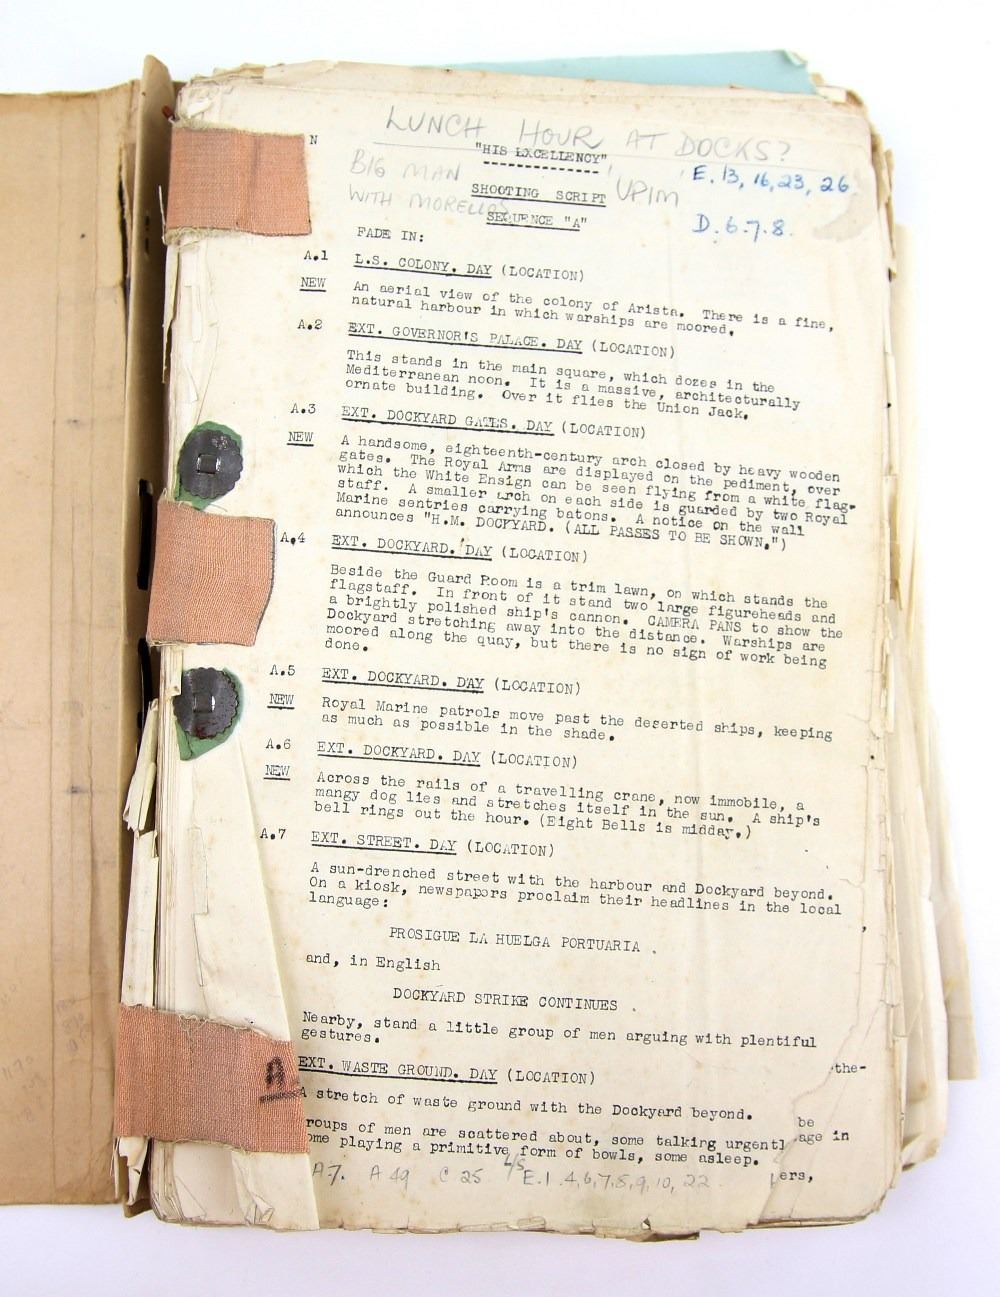 LUNCH HOUR AT DOCKS?
N
"HIS EXCELLENCY"
BIG MAN
WITH MORELLOS
'UPIM'
E. 13, 16, 23, 26.
D. 6. 7. 8.
SHOOTING SCRIPT
SEQUENCE "A"
FADE IN:
A.1 L.S. COLONY. DAY (LOCATION)
NEW An aerial view of the colony of Arista. There is a fine,
natural harbour in which warships are moored.
A.2 EXT. GOVERNOR'S PALACE. DAY (LOCATION)
This stands in the main square, which dozes in the
Mediterranean noon. It is a massive, architecturally
ornate building. Over it flies the Union Jack.
A.3 EXT. DOCKYARD GATES. DAY (LOCATION)
NEW A handsome, eighteenth-century arch closed by heavy wooden
gates. The Royal Arms are displayed on the pediment, over
which the White Ensign can be seen flying from a white flag-
staff. A smaller arch on each side is guarded by two Royal
Marine sentries carrying batons. A notice on the wall
announces "H.M. DOCKYARD. (ALL PASSES TO BE SHOWN.")
A.4 EXT. DOCKYARD. DAY (LOCATION)
Beside the Guard Room is a trim lawn, on which stands the
flagstaff. In front of it stand two large figureheads and
a brightly polished ship's cannon. CAMERA PANS to show the
Dockyard stretching away into the distance. Warships are
moored along the quay, but there is no sign of work being
done.
A.5 EXT. DOCKYARD. DAY (LOCATION)
NEW Royal Marine patrols move past the deserted ships, keeping
as much as possible in the shade.
A.6 EXT. DOCKYARD. DAY (LOCATION)
NEW Across the rails of a travelling crane, now immobile, a
mangy dog lies and stretches itself in the sun. A ship's
bell rings out the hour. (Eight Bells is midday.)
A.7 EXT. STREET. DAY (LOCATION)
A sun-drenched street with the harbour and Dockyard beyond.
On a kiosk, newspapers proclaim their headlines in the local
language:
PROSIGUE LA HUELGA PORTUARIA .
and, in English
DOCKYARD STRIKE CONTINUES .
Nearby, stand a little group of men arguing with plentiful
gestures.
A EXT. WASTE GROUND. DAY (LOCATION)
the-
A stretch of waste ground with the Dockyard beyond.
be
roups of men are scattered about, some talking urgentl
age in
ome playing a primitive form of bowls, some asleep.
ers,
A7. A 49 C 25 L/S E.1.4,6,7,8,9,10, 22